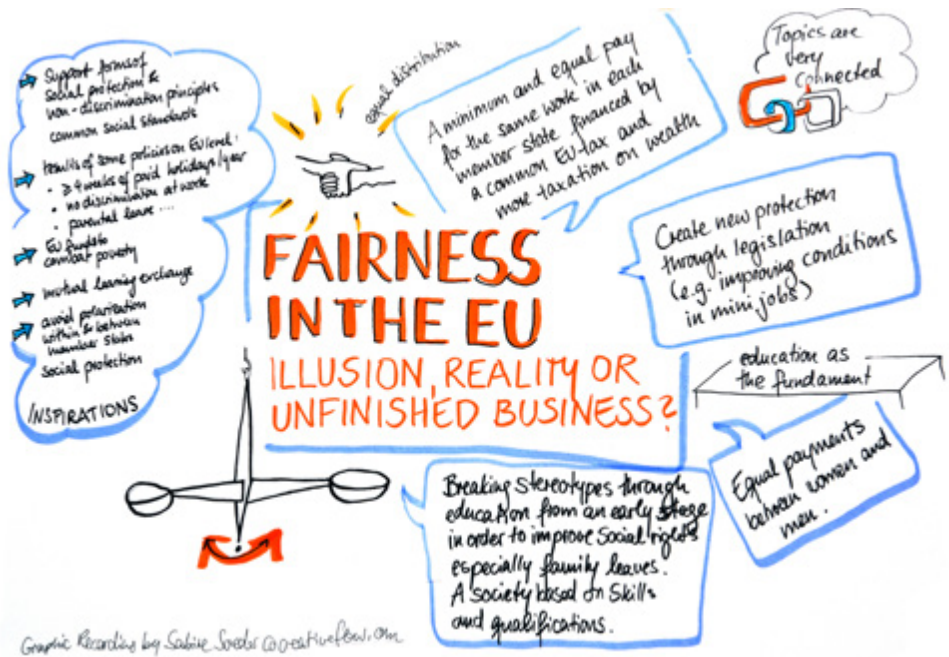 Support forms of
social protection &
non-discrimination principles
common social standards
results of some policies on EU level:
• ≥ 4 weeks of paid holidays/year
• no discrimination at work
• parental leave ...
EU funds to
combat poverty
mutual learning exchange
avoid polarization
within & between
member states
social protection
INSPIRATIONS
equal distribution
A minimum and equal pay
for the same work in each
member state financed by
a common EU-tax and
more taxation on wealth
Topics are
very
connected
FAIRNESS
IN THE EU
ILLUSION, REALITY OR
UNFINISHED BUSINESS?
Create new protection
through legislation
(e.g. improving conditions
in mini jobs)
education as
the fundament
Equal payments
between women and
men.
Breaking stereotypes through
education from an early stage
in order to improve social rights
especially family leaves.
A society based on skills
and qualifications.
Graphic Recording by Sabine Soeder